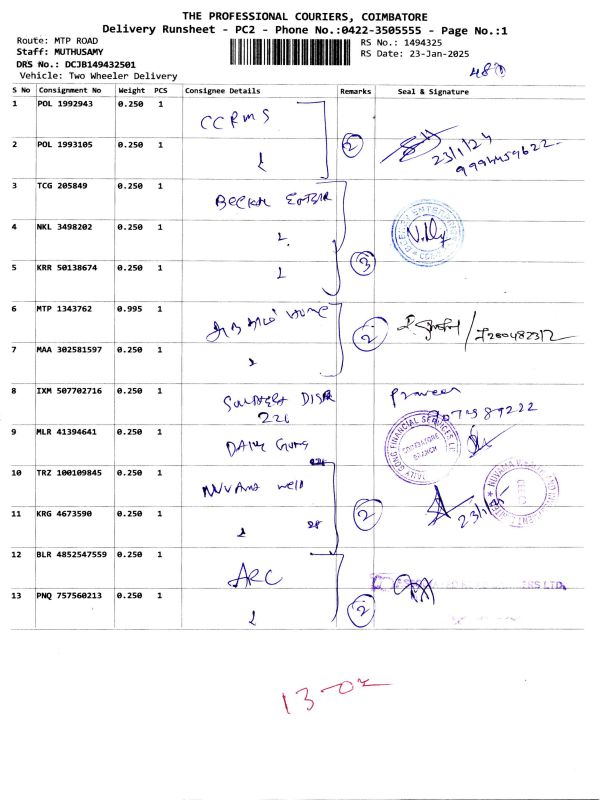 THE PROFESSIONAL COURIERS, COIMBATORE
Delivery Runsheet - PC2 - Phone No.:0422-3505555 - Page No.:1
Route: MTP ROAD
RS No.: 1494325
Staff: MUTHUSAMY
RS Date: 23-Jan-2025
DRS No.: DCJB149432501
Vehicle: Two Wheeler Delivery
S No Consignment No Weight PCS Consignee Details Remarks Seal & Signature
1 POL 1992943 0.250 1 CCRMS
2 POL 1993105 0.250 1 2
23/1/24
3 TCG 205849 0.250 1
4 NKL 3498202 0.250 1
5 KRR 50138674 0.250 1 3
6 MTP 1343762 0.995 1 2
7 MAA 302581597 0.250 1
8 IXM 507702716 0.250 1 Praveen
9 MLR 41394641 0.250 1 DAILY GONG
DAILY GONG FINANCIAL SERVICES
COIMBATORE
BRANCH
10 TRZ 100109845 0.250 1 NUVAMA
11 KRG 4673590 0.250 1 2 23/1/25
12 BLR 4852547559 0.250 1 ARC
13 PNQ 757560213 0.250 1 2
13-02